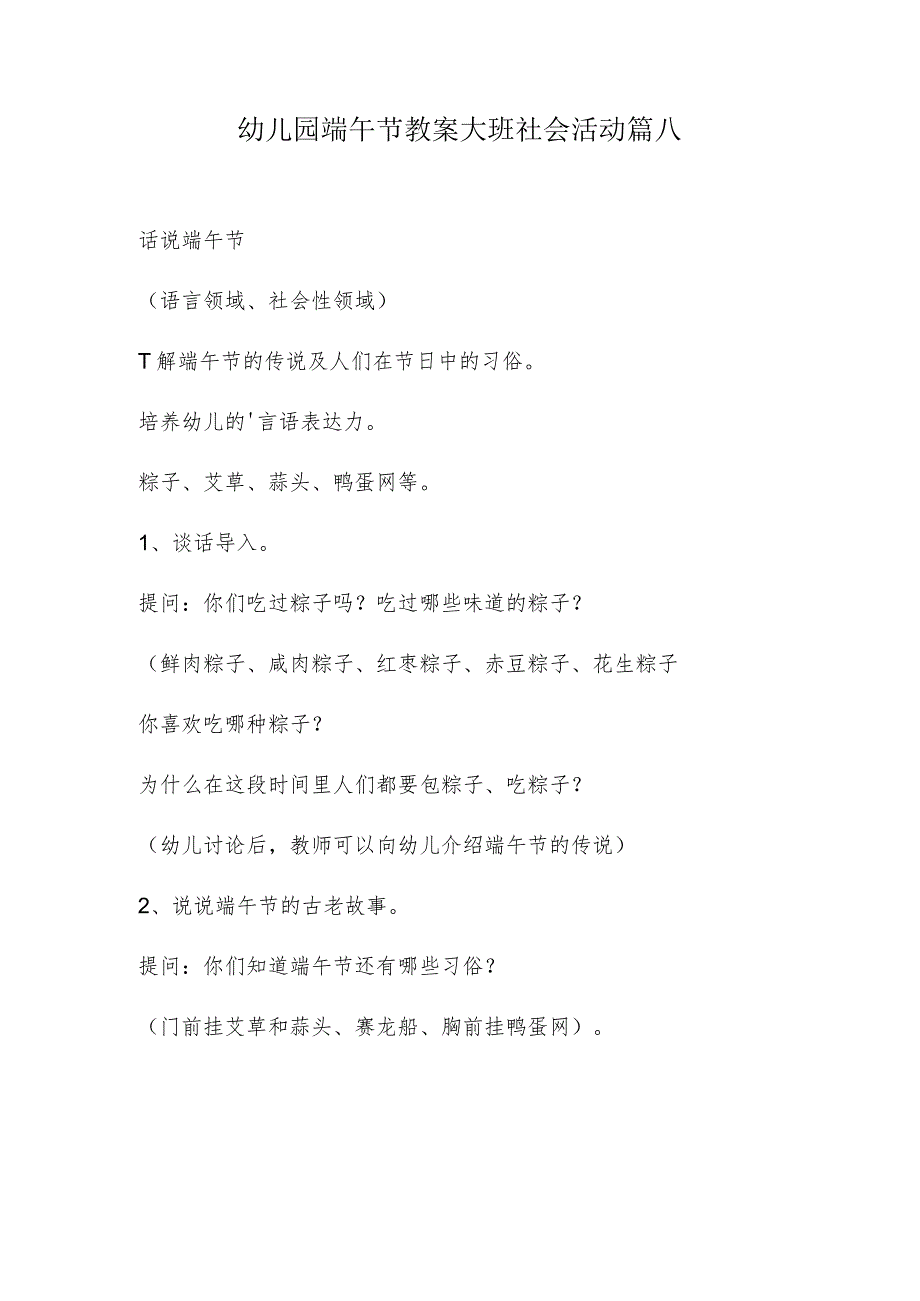 幼儿园端午节教案大班社会活动篇八
话说端午节
（语言领域、社会性领域）
T解端午节的传说及人们在节日中的习俗。
培养幼儿的'言语表达力。
粽子、艾草、蒜头、鸭蛋网等。
1、谈话导入。
提问：你们吃过粽子吗？吃过哪些味道的粽子？
（鲜肉粽子、咸肉粽子、红枣粽子、赤豆粽子、花生粽子
你喜欢吃哪种粽子？
为什么在这段时间里人们都要包粽子、吃粽子？
（幼儿讨论后，教师可以向幼儿介绍端午节的传说）
2、说说端午节的古老故事。
提问：你们知道端午节还有哪些习俗？
（门前挂艾草和蒜头、赛龙船、胸前挂鸭蛋网）。